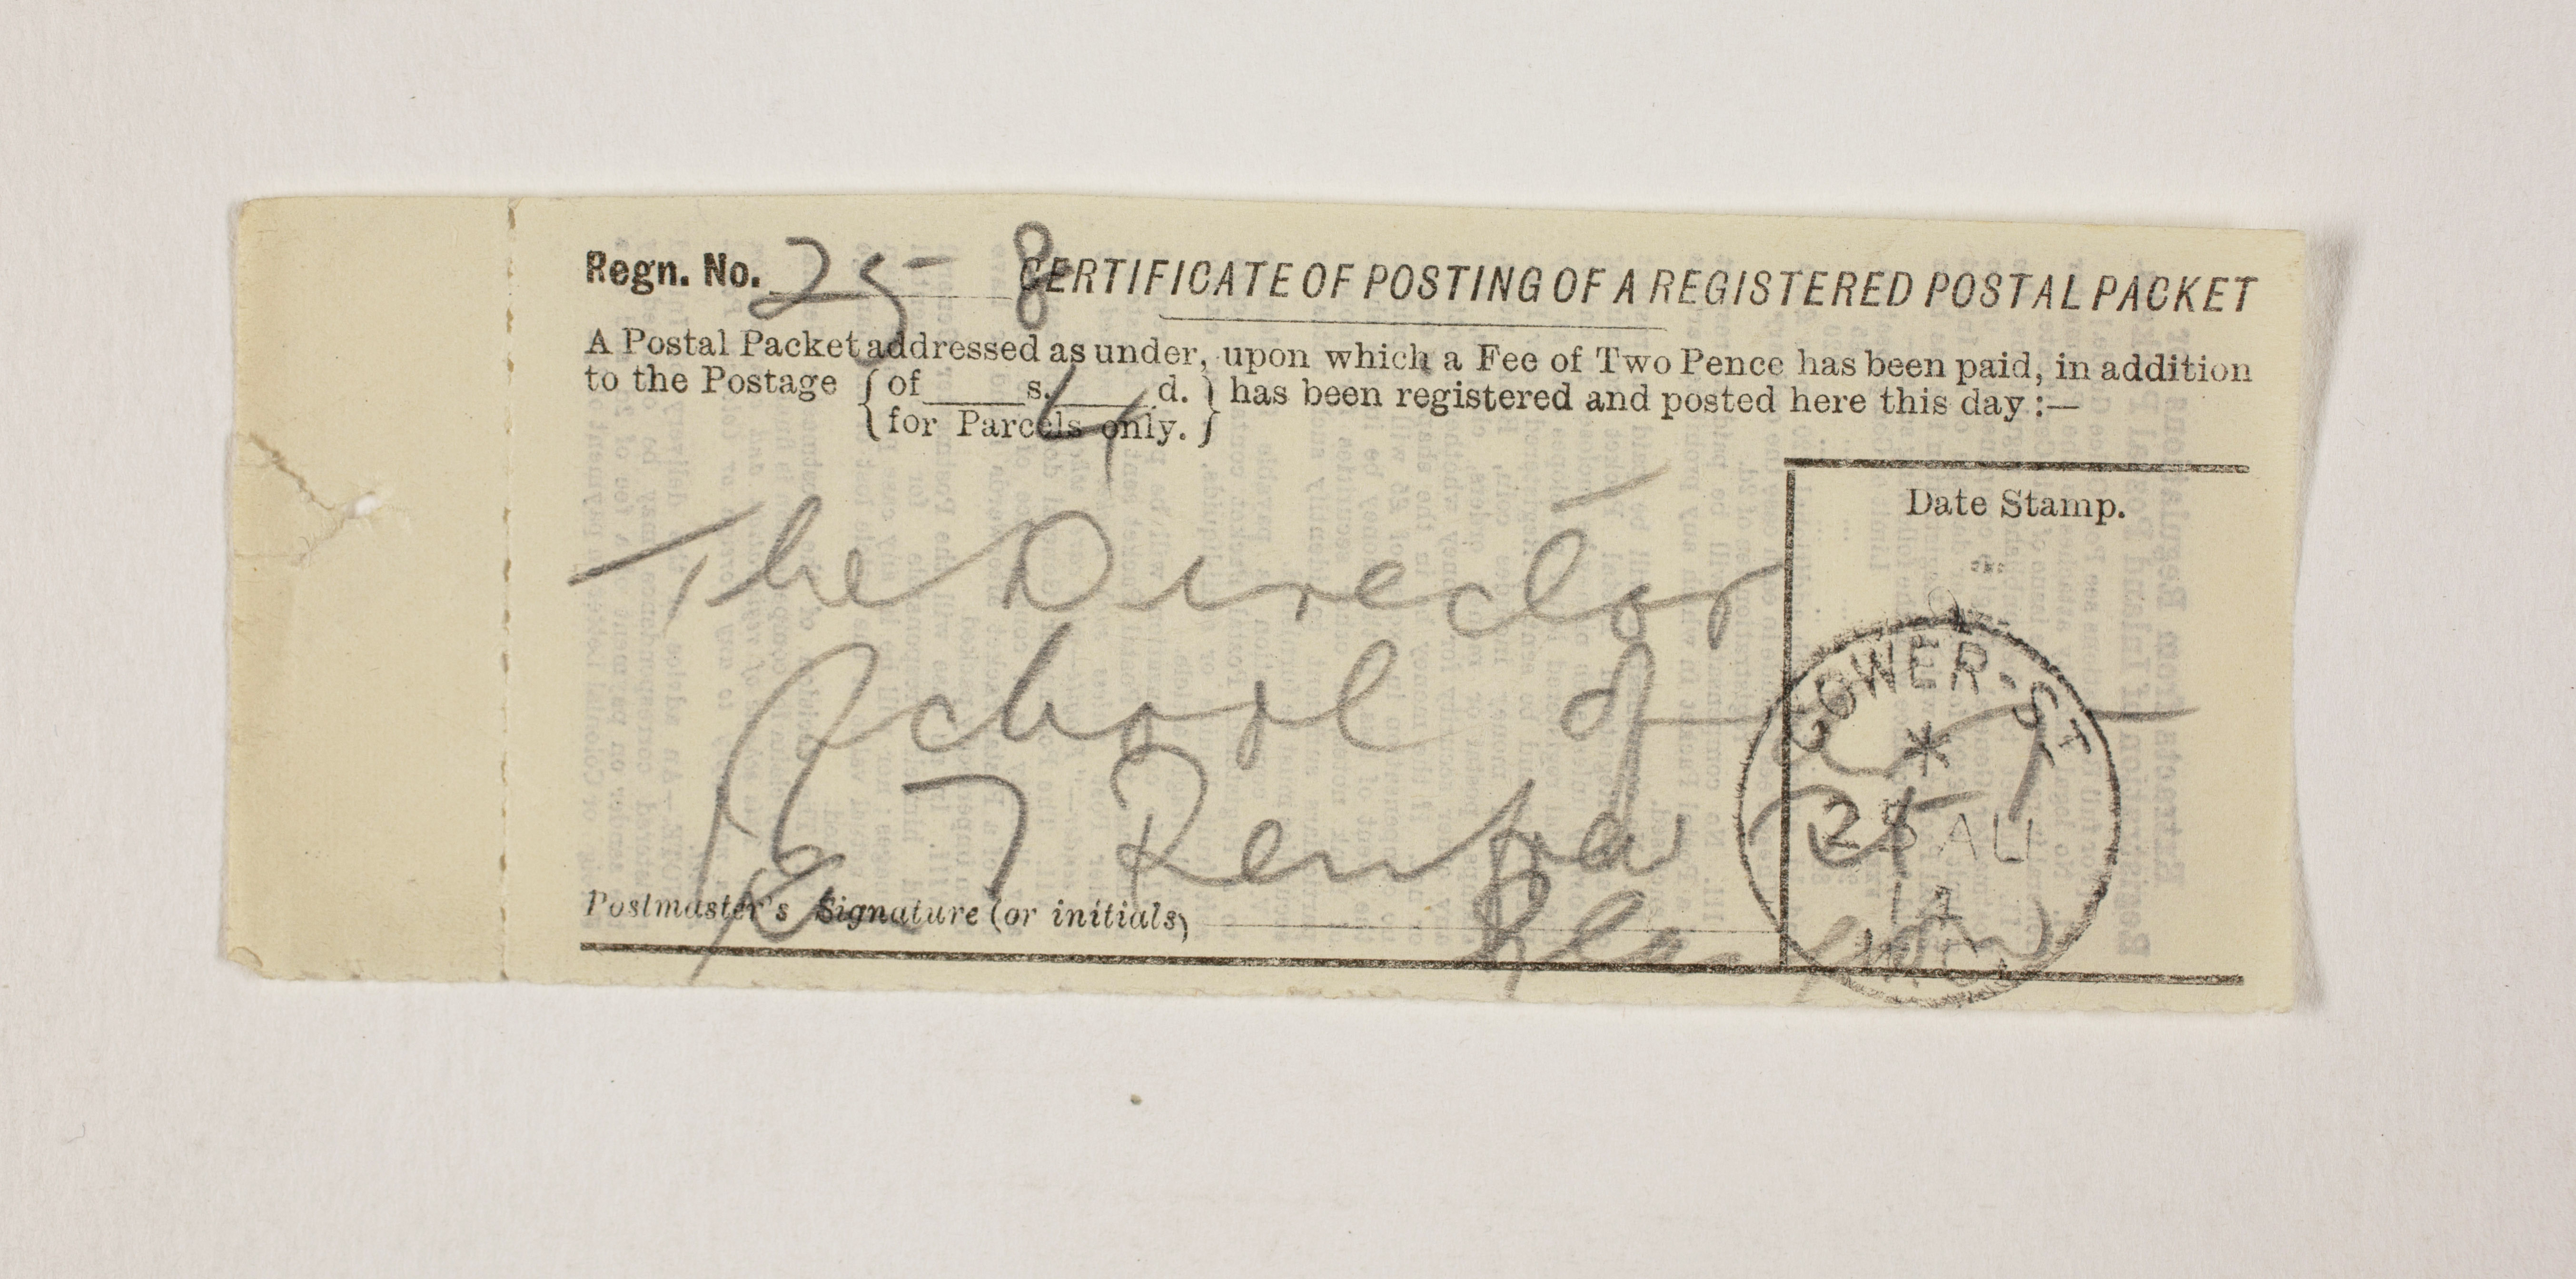 Regn. No. 258 CERTIFICATE OF POSTING OF A REGISTERED POSTAL PACKET
A Postal Packet addressed as under, upon which a Fee of Two Pence has been paid, in addition
to the Postage { of s. 4 d. } has been registered and posted here this day :—
for Parcels only.
The Director
School of Art
167 Renfrew St
Glasgow
Date Stamp.
GOWER·ST
*
25 AU
14
W.C.
Postmaster's Signature (or initials)